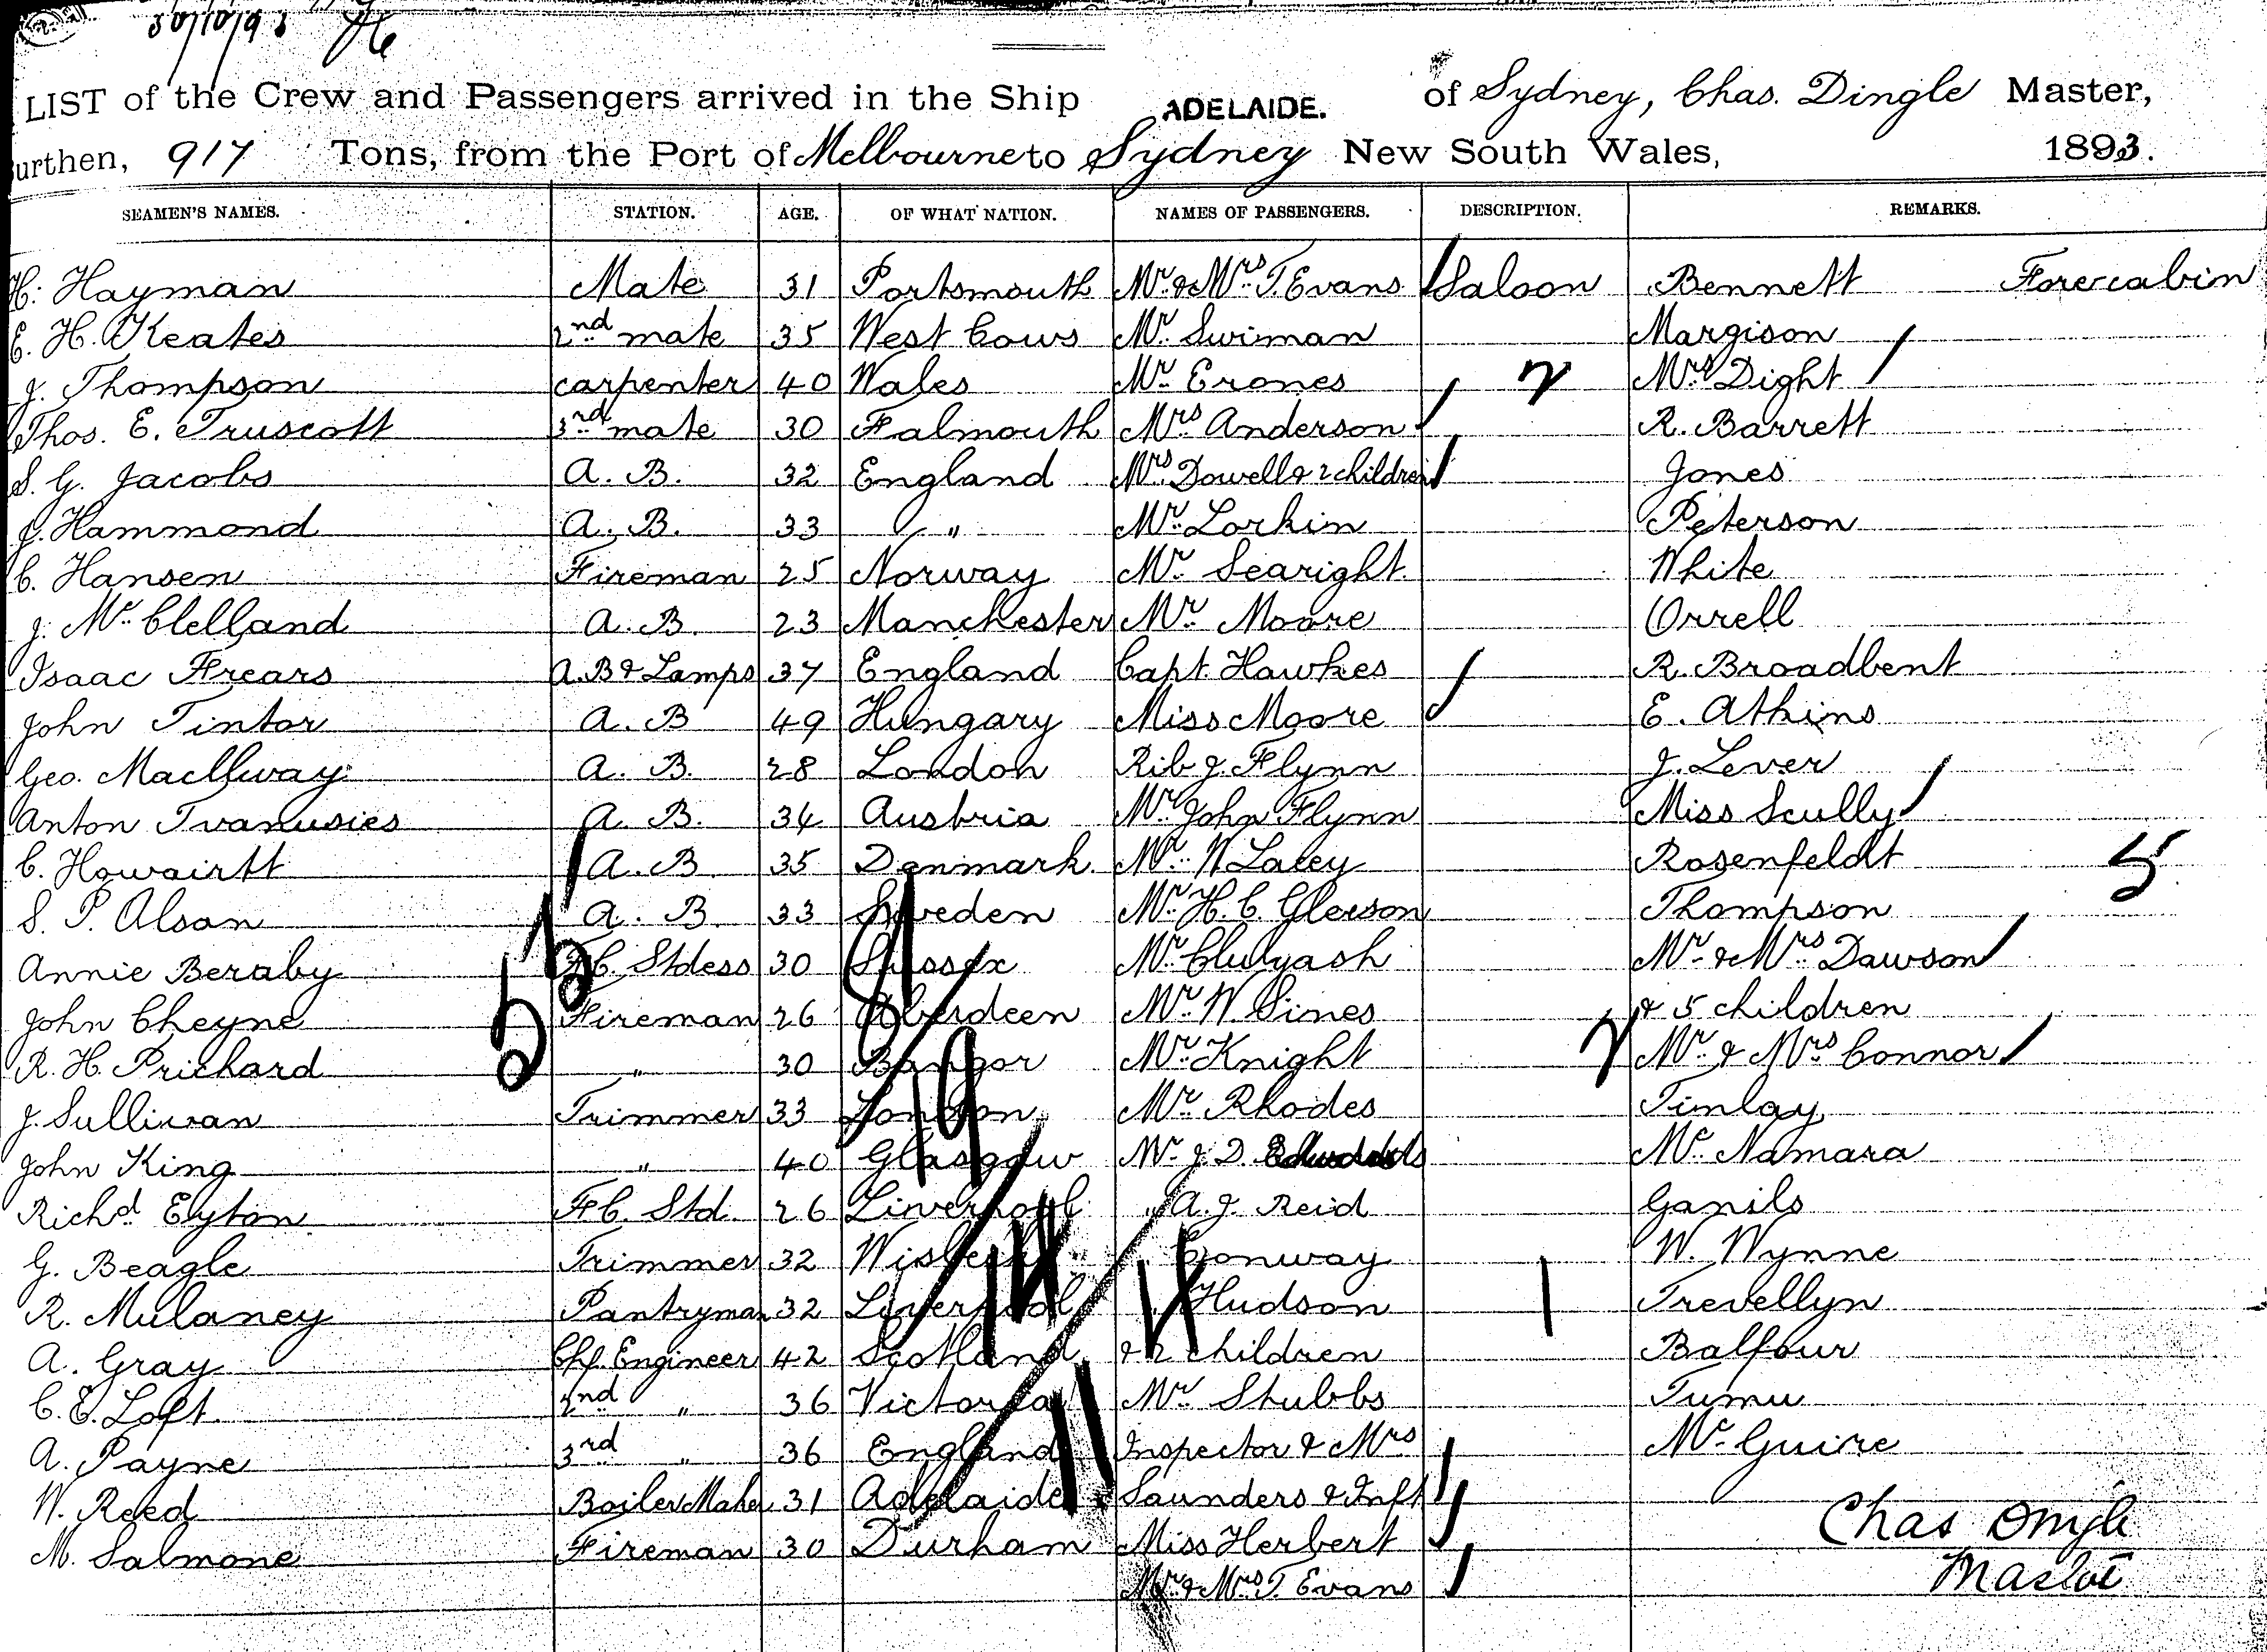 30/10/93
LIST of the Crew and Passengers arrived in the Ship ADELAIDE. of Sydney, Chas. Dingle Master,
urthen, 917 Tons, from the Port of Melbourne to Sydney New South Wales, 1893.
SEAMEN'S NAMES. STATION. AGE. OF WHAT NATION. NAMES OF PASSENGERS. DESCRIPTION. REMARKS.
H. Hayman Mate 31 Portsmouth Mr. & Mrs T. Evans Saloon Bennett Forecabin
E. H. Keates 2nd mate 35 West Cows Mr. Swiman Margison
J. Thompson carpenter 40 Wales Mr. Erones 2 Mrs Dight
Thos. E. Truscott 3rd mate 30 Falmouth Mrs Anderson R. Barrett
S. G. Jacobs A. B. 32 England Mrs Dowell & 2 children Jones
J. Hammond A. B. 33 " Mr. Lorkin Peterson
C. Hansen Fireman 25 Norway Mr. Searight White
J. Mc Clelland A. B. 23 Manchester Mr. Moore Orrell
Isaac Frears A. B & Lamps 37 England Capt. Hawkes R. Broadbent
John Tintor A. B 49 Hungary Miss Moore E. Athins
Geo. Macllway A. B. 28 London Rib J. Flynn J. Lever
Anton Ivanusies A. B. 34 Austria Mr John Flynn Miss Scully
C. Howairtt A. B 35 Denmark Mr. W Lacey Rosenfeldt 5
S. P. Alsan A. B 33 Sweden Mr. H. C. Gleeson Thompson
Annie Beraby F.C. Stdess 30 Sussex Mr. Clulyash Mr. & Mrs Dawson
John Cheyne Fireman 26 Aberdeen Mr. W. Sines & 5 children
R. H. Prichard " 30 Bangor Mr. Knight Mr. & Mrs Connor
J. Sullivan Trimmer 33 London Mr. Rhodes Finlay
John King " 40 Glasgow Mr J. D. Mc Namara
Richd Eyton F.C. Std. 26 Liverpool " A. J. Reid Ganils
G. Beagle Trimmer 32 Conway W. Wynne
R. Mulaney Pantryman 32 Liverpool Hudson Trevellyn
A. Gray Chf. Engineer 42 Scotland & 2 children Balfour
C. E. Loft 2nd " 36 Victoria Mr Stubbs Tumu
A. Payne 3rd " 36 England Inspector & Mrs Mc Guire
W. Reed Boiler Maker 31 Adelaide Saunders & Inft
M. Salmone Fireman 30 Durham Miss Herbert
Mr & Mrs T. Evans
Chas Dingle
Master